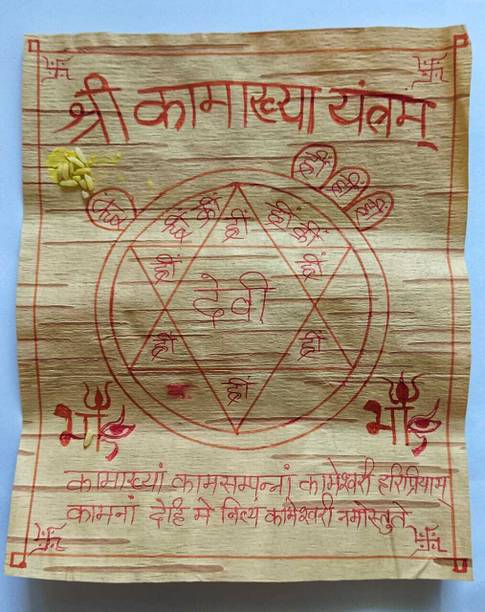 श्री कामाख्या यंत्रम्
ह्रीं क्लीं
ह्रीं
ह्रीं क्लीं
ह्रीं
ह्रीं
देवी
ह्रीं
ह्रीं
ह्रीं
माँ
माँ
कामाख्यां कामसम्पन्नां कामेश्वरी हरिप्रियाम्
कामनां देहि मे नित्यं कामेश्वरी नमोस्तुते